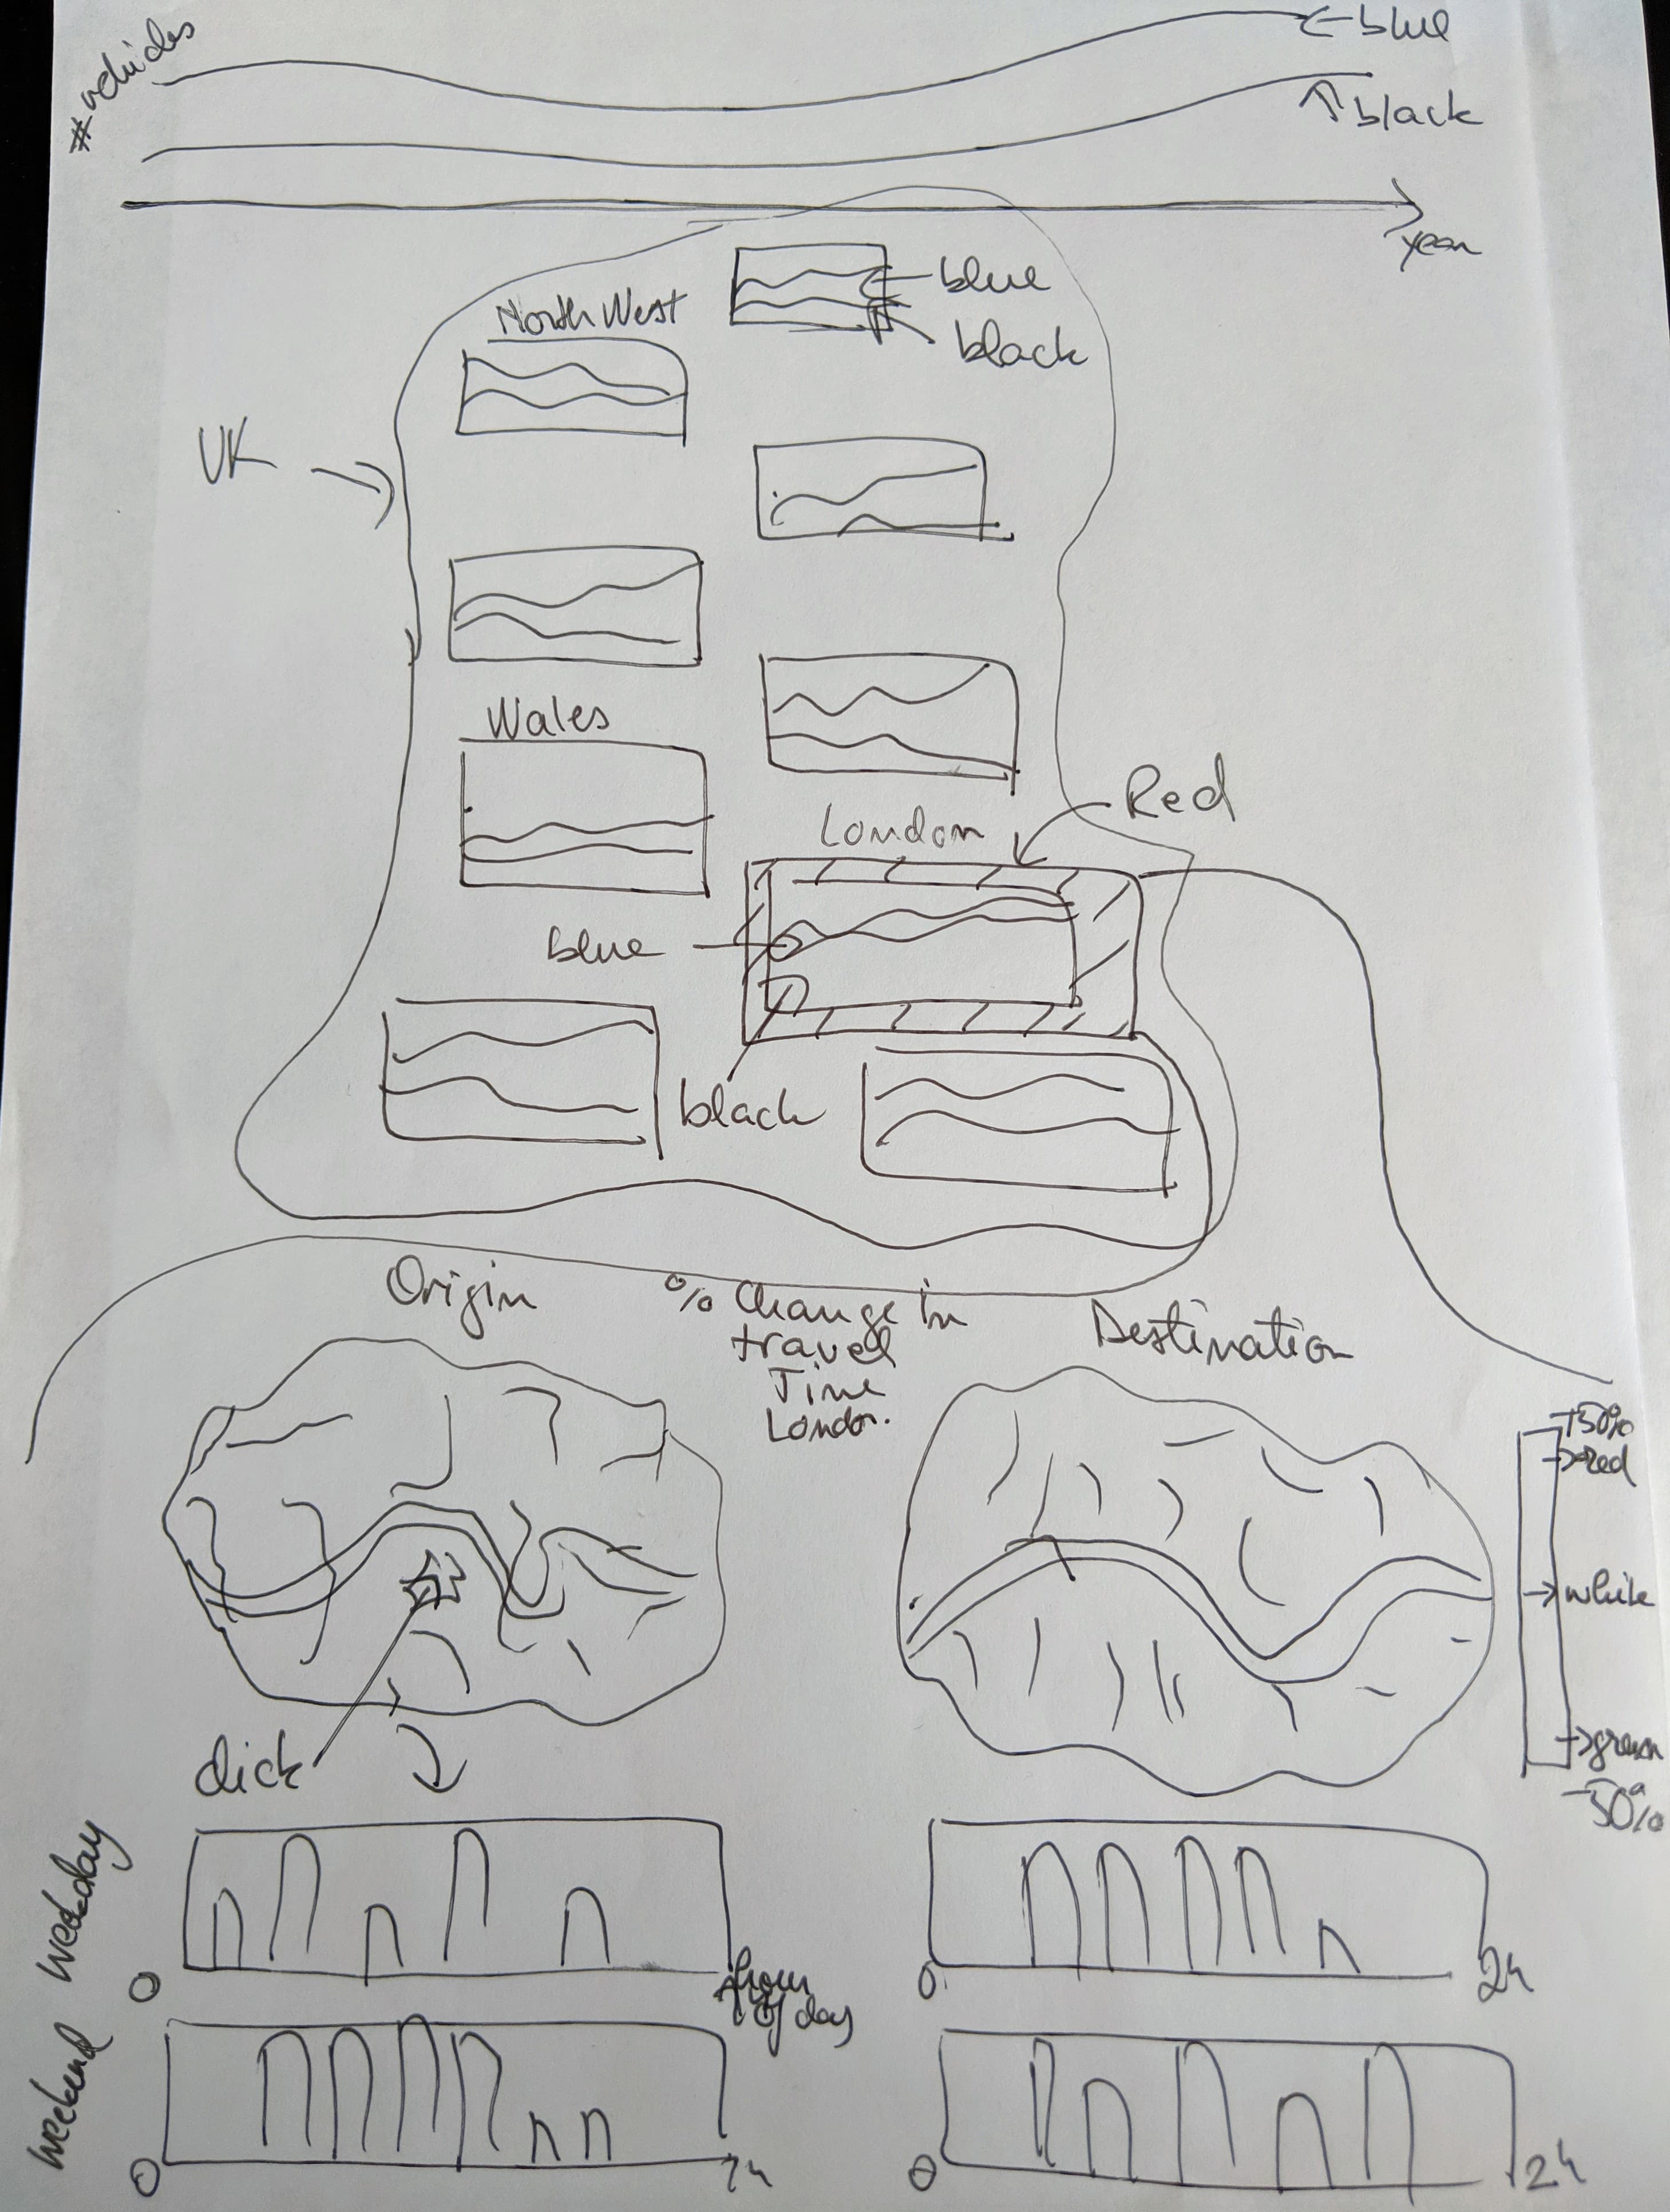 # vehicles
←blue
↑black
year
blue
black
North West
UK
Wales
Red
London
blue
black
Origin
% Change in
travel
Time
London.
Destination
+50%
→red
→white
→green
-50%
click
weekday
0
hour
of day
0
24
weekend
0
24
0
24